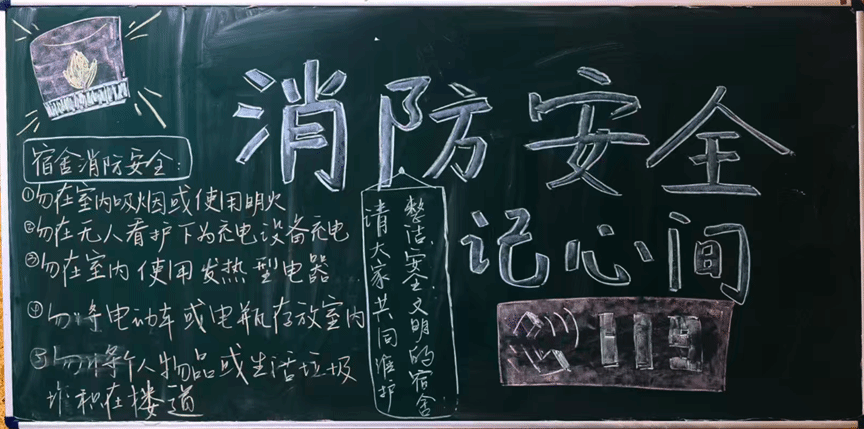 消防安全
记心间
宿舍消防安全:
①勿在室内吸烟或使用明火
②勿在无人看护下为充电设备充电
③勿在室内使用发热型电器
④勿将电动车或电瓶存放室内
⑤勿将个人物品或生活垃圾
堆积在楼道
请大家共同维护
整洁、安全、文明的宿舍
119